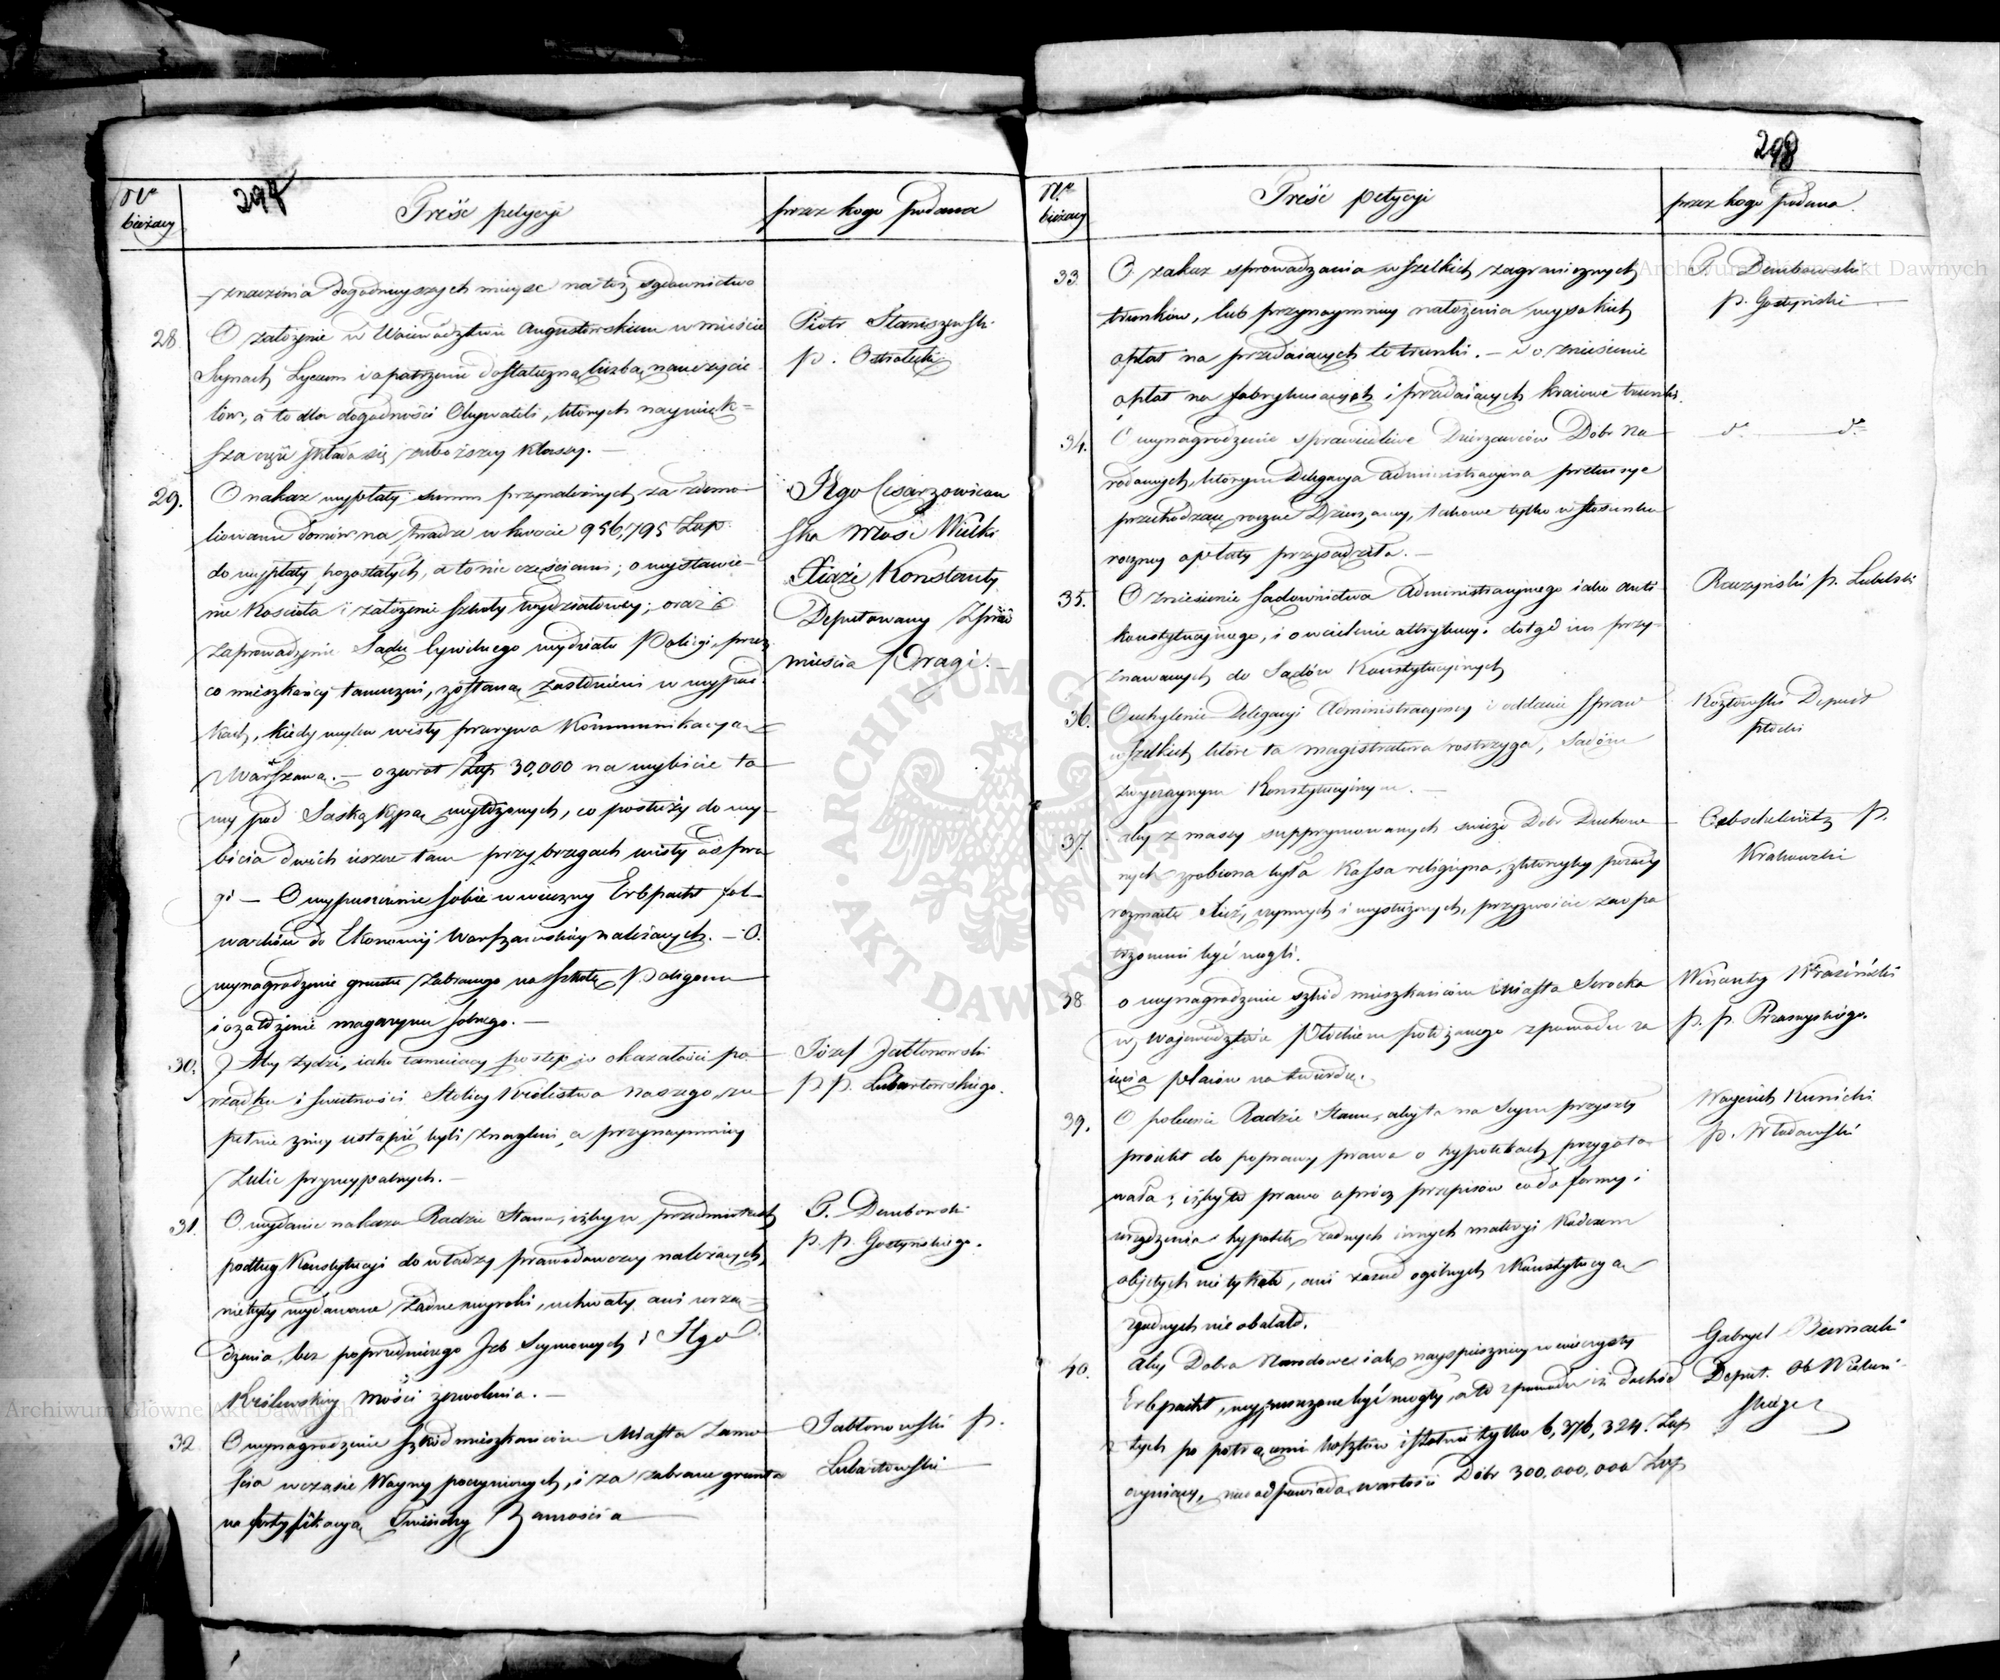 Nr bieżący
297
Treść petycyi
przez kogo podana
znaczenia dogodnieyszych mieysc na toż sądownictwo
28. O założenie w Woiewództwie Augustowskiem w mieście
Seynach Lyceum i opatrzenie dostateczną liczbą nauczycie-
lów, a to dla dogodności Obywateli, których naywięk-
sza część składa się z uboższey klassy. —
Piotr Staniszewski
p. Ostrołęcki
29. O nakaz wypłaty summ przynależnych za zdemo-
liowanie domów na Pradze w kwocie 956,795 Złp.
do wypłaty pozostałych, a to nie częściami; o wystawie-
nie Kościoła i założenie szkoły wydziałowey; oraz o
zaprowadzenie Sądu Cywilnego wydziału Policyi, przez
co mieszkańcy tameczni, zostaną zasłonieni w wypad-
kach, kiedy wylew wisły przerywa Kommunikacyą z
Warszawą. — o zwrot Złp. 30,000 na wybicie ta-
my pod Saską Kępą wyłożonych, co posłuży do wy-
bicia dwóch ieszcze tam przy brzegach wisły od Pra-
gi — O wypuszczenie sobie w wieczny Erbpacht fol-
warków do Ekonomij Warszawskiey należących. — O.
wynagrodzenie gruntu zabranego na szkołę Poligonu
i o założenie magazynu solnego. —
JEgo Cesarzowicow
ska Mość Wielki
Xiąże Konstanty
Deputowany z Przed
mieścia Pragi. —
30. Aby Żydzi, iako tamuiący postęp w okazałości po-
rządku i świetności Stolicy Królestwa naszego, zu-
pełnie z niey ustąpić byli znagleni, a przynaymniey
z ulic pryncypalnych. —
Józef Jabłonowski
p. p. Lubartowskiego.
31. O wydanie nakazu Radzie Stanu, iżby w przedmiotach
podług Konstytucyi do władzy prawodawczey należących,
nie były wydawane żadne wyroki, uchwały ani urzą-
dzenia, bez poprzedniego Izb Seymowych i JEgo
Królewskiey Mości zezwolenia. —
P. Dembowski
p. p. Gostyńskiego.
32. O wynagrodzenie szkód mieszkańców Miasta Zamo-
ścia w czasie Woyny poczynionych, i za zabrane grunta
na fortyfikacyą Twierdzy Zamościa
Jabłonowski p.
Lubartowski
298
Nr. bieżący
Treść petycyi
przez kogo podana.
33. O zakaz sprowadzania wszelkich zagranicznych
trunków, lub przynaymniey nałożenia wysokich
opłat na przedaiących te trunki. — i o zniesienie
opłat na fabrykuiących i przedaiących kraiowe trunki.
P. Dembowski
p. Gostyński
34. O wynagrodzenie sprawiedliwe Dzierżawców Dóbr Na-
rodowych, którym Delegacya Administracyina pretensye
przechodzące roczne Dzierżawy, takowe tylko w stosunku
roczney opłaty przysądziła. —
do do
35. O zniesienie sądownictwa Administracyinego iako anti
konstytucyinego, i o wcielenie attrybucyi dotąd im przy-
znawanych do Sądów Konstytucyinych
Raczyński p. Lubelski
36. O uchylenie Delegacyi Administracyiney i oddanie spraw
wszelkich które ta magistratura rostrzyga, Sądom
zwyczaynym Konstytucyinym. —
Kozłowski Deput
płocki
37. aby z massy suppry­mowanych świeżo Dóbr Duchow-
nych zrobiona była Kassa religiyna, z któreyby
rozmaite czynnych i wysłużonych, przyzwoicie zaopa
trzonemi być mogli.
p.
Krakowski
38. o wynagrodzenie szkód mieszkańców Miasta Serocka
w Województwie Płockiem położonego z powodu za-
ięcia placów na twierdzę.
Wincenty Krasiński
p. p. Przasnyskiego.
39. O polecenie Radzie Stanu, aby ta na Seym przyszły
proiekt do poprawy prawa o hypotekach przygoto-
wała; iżby to prawo oprócz przepisów co do formy i
urządzenia hypotek żadnych innych materyi Kodexem
obiętych nie tykało, ani zasad ogólnych z Konstytucyą
zgodnych nie obalało.
Woyciech Kunicki
p. Włodawski
40. Aby Dobra Narodowe iak nayspieszniey w wieczysty
Erbpacht, wypuszczone być mogły, a to z powodu iż dochód
z tych po potrąceniu kosztów istotnie tylko 6,376,324. Złp
czyniący, nie odpowiada wartości Dóbr 300,000,000 Złp
Gabryel Biernacki
Deput. Ob Wieluń-
skiego